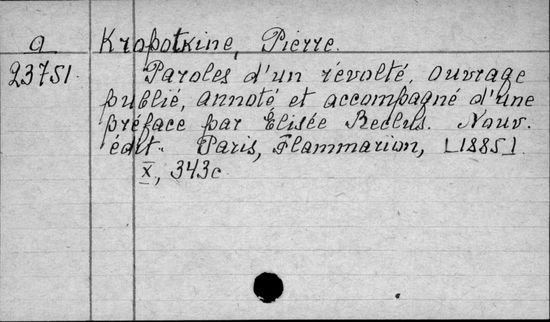 a Kropotkine, Pierre.
23751. Paroles d'un révolté, ouvrage
publié, annoté et accompagné d'une
préface par Élisée Reclus. Nouv.
édit. Paris, Flammarion, [1885].
X, 343c